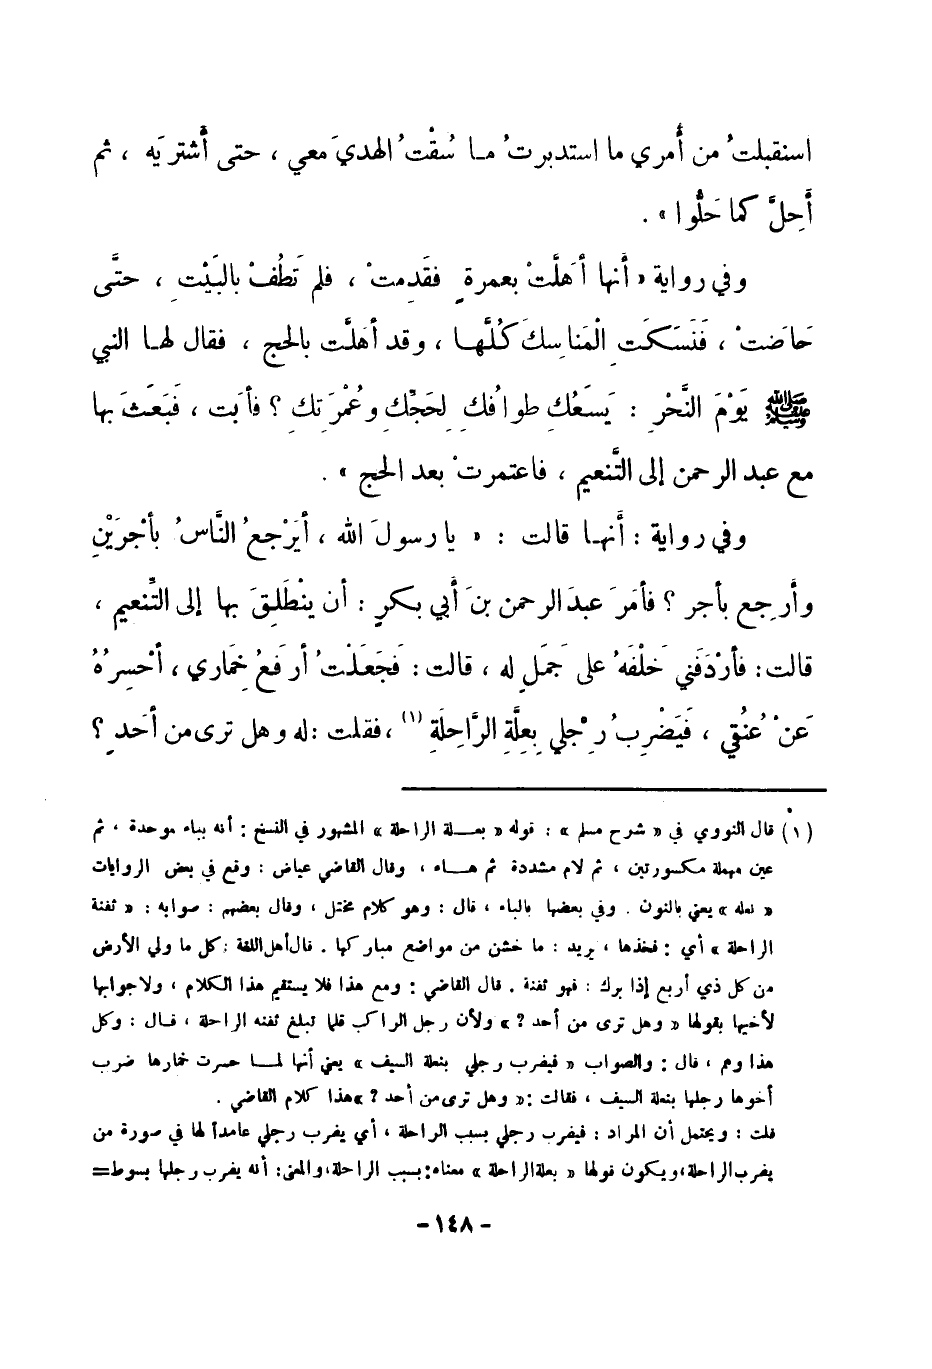 استقبلتُ من أَمري ما استدبرتُ مـا سُقْتُ الهديَ معي ، حتى أَشتريَه ، ثم
أَحِلَّ كما حَلُّوا » .
وفي رواية « أَنها أَهَلَّتْ بعمرةٍ فقَدِمتْ ، فلم تَطُفْ بالبَيْتِ ، حتَّى
حَاضَتْ ، فَنَسَكَتِ الْمَنَاسِكَ كُلَّهـا ، وقد أَهلَّت بالحج ، فقال لهـا النبي
ﷺ يَوْمَ النَّحْرِ : يَسَعُكِ طوافُكِ لِحَجِّكِ وعُمْرَتِكِ ؟ فأَبَت ، فَبَعَثَ بها
مع عبد الرحمن إلى التَّنعيم ، فاعتمرتْ بعد الحج » .
وفي رواية : أَنهـا قالت : « يا رسولَ الله ، أَيَرْجعُ النَّاسُ بأَجْرَيْنِ
وأَرجِع بأجر ؟ فأمَرَ عبدَ الرحمن بنَ أَبي بكرٍ : أن ينْطَلِقَ بها إلى التَّنعيم ،
قالت : فأَرْدَفَني خَلْفَهُ على جَمَلٍ له ، قالت : فَجَعَلْتُ أرفَعُ خِمَاري ، أَحْسِرُهُ
عَنْ عُنُقي ، فَيَضْرِبُ رِجْلي بِعِلَّةِ الرَّاحِلَةِ (١) ، فقلت : له وهل ترى من أَحَدٍ ؟
(١) قال النووي في « شرح مسلم » : قوله « بعـلة الراحلة » المشهور في النسخ : أنه بباء موحدة ، ثم
عين مهملة مكسورتين ، ثم لام مشددة ثم هـاء ، وقال القاضي عياض : وقع في بعض الروايات
« نعله » يعني بالنون . وفي بعضها بالباء ، قال : وهو كلام مختل ، وقال بعضهم : صوابه : « ثفنة
الراحلة » أي : فخذها ، يريد : ما خشن من مواضع مباركها . قال أهل اللغة : كل ما ولي الأرض
من كل ذي أربع إذا برك : فهو ثفنة . قال القاضي : ومع هذا فلا يستقيم هذا الكلام ، ولا جوابها
لأخيها بقولها « وهل ترى من أحد ؟ » ولأن رجل الراكب قلما تبلغ ثفنه الراحلة ، قـال : وكل
هذا وهم ، قال : والصواب « فيضرب رجلي بنعلة السيف » يعني أنها لمـا حسرت خمارها ضرب
أخوها رجلها بنعلة السيف ، فقالت : « وهل ترى من أحد ؟ » هذا كلام القاضي .
قلت : ويحتمل أن المراد : فيضرب رجلي بسبب الراحلة ، أي يضرب رجلي عامداً لها في صورة من
يضرب الراحلة ، ويكون قولها « بعلة الراحلة » معناه : بسبب الراحلة ، والمعنى : أنه يضرب رجلها بسوط=
- ١٤٨ -